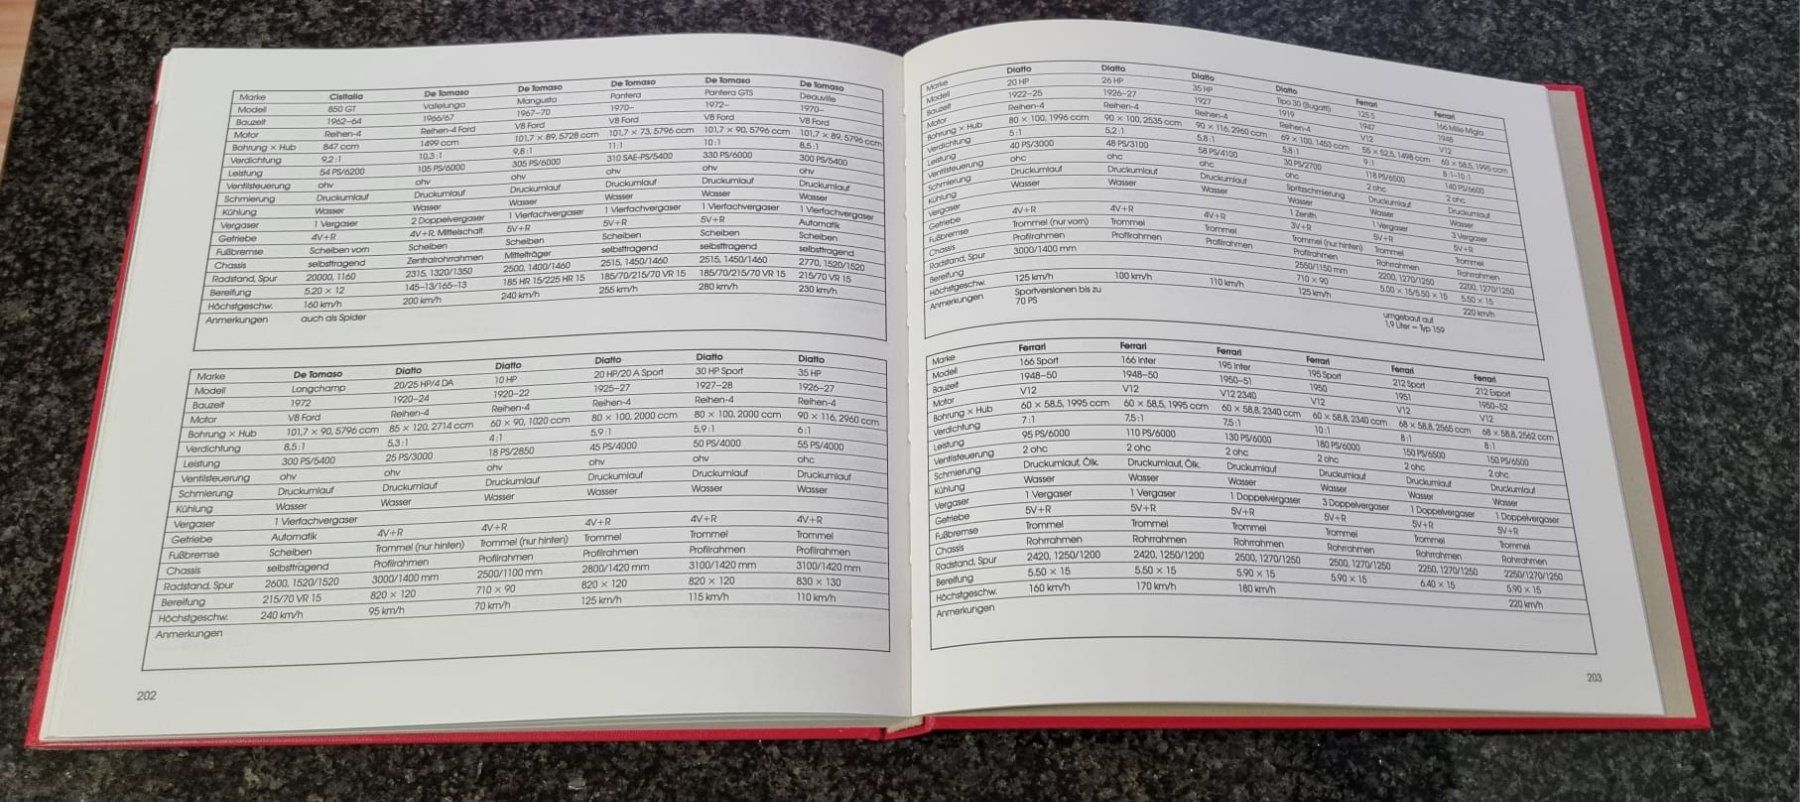 Marke Cisitalia De Tomaso De Tomaso De Tomaso De Tomaso De Tomaso
Modell 850 GT Vallelunga Mangusta Pantera Pantera GTS Deauville
Bauzeit 1962–64 1966/67 1967–70 1970– 1972– 1970–
Motor Reihen-4 Reihen-4 Ford V8 Ford V8 Ford V8 Ford V8 Ford
Bohrung × Hub 847 ccm 1499 ccm 101,7 × 89, 5728 ccm 101,7 × 73, 5796 ccm 101,7 × 90, 5796 ccm 101,7 × 89, 5796 ccm
Verdichtung 9,2:1 10,3:1 9,8:1 11:1 10:1 8,5:1
Leistung 54 PS/6200 105 PS/6000 305 PS/6000 310 SAE-PS/5400 330 PS/6000 300 PS/5400
Ventilsteuerung ohv ohv ohv ohv ohv ohv
Schmierung Druckumlauf Druckumlauf Druckumlauf Druckumlauf Druckumlauf Druckumlauf
Kühlung Wasser Wasser Wasser Wasser Wasser Wasser
Vergaser 1 Vergaser 2 Doppelvergaser 1 Vierfachvergaser 1 Vierfachvergaser 1 Vierfachvergaser 1 Vierfachvergaser
Getriebe 4V+R 4V+R, Mittelschalt. 5V+R 5V+R 5V+R Automatik
Fußbremse Scheiben vorn Scheiben Scheiben Scheiben Scheiben Scheiben
Chassis selbsttragend Zentralrohrrahmen Mittelträger selbsttragend selbsttragend selbsttragend
Radstand, Spur 20000, 1160 2315, 1320/1350 2500, 1400/1460 2515, 1450/1460 2515, 1450/1460 2770, 1520/1520
Bereifung 5.20 × 12 145–13/165–13 185 HR 15/225 HR 15 185/70/215/70 VR 15 185/70/215/70 VR 15 215/70 VR 15
Höchstgeschw. 160 km/h 200 km/h 240 km/h 255 km/h 280 km/h 230 km/h
Anmerkungen auch als Spider
Marke De Tomaso Diatto Diatto Diatto Diatto Diatto
Modell Longchamp 20/25 HP/4 DA 10 HP 20 HP/20 A Sport 30 HP Sport 35 HP
Bauzeit 1972 1920–24 1920–22 1925–27 1927–28 1926–27
Motor V8 Ford Reihen-4 Reihen-4 Reihen-4 Reihen-4 Reihen-4
Bohrung × Hub 101,7 × 90, 5796 ccm 85 × 120, 2714 ccm 60 × 90, 1020 ccm 80 × 100, 2000 ccm 80 × 100, 2000 ccm 90 × 116, 2960 ccm
Verdichtung 8,5:1 5,3:1 4:1 5,9:1 5,9:1 6:1
Leistung 300 PS/5400 25 PS/3000 18 PS/2850 45 PS/4000 50 PS/4000 55 PS/4000
Ventilsteuerung ohv ohv ohv ohv ohv ohc
Schmierung Druckumlauf Druckumlauf Druckumlauf Druckumlauf Druckumlauf Druckumlauf
Kühlung Wasser Wasser Wasser Wasser Wasser Wasser
Vergaser 1 Vierfachvergaser
Getriebe Automatik 4V+R 4V+R 4V+R 4V+R 4V+R
Fußbremse Scheiben Trommel (nur hinten) Trommel (nur hinten) Trommel Trommel Trommel
Chassis selbsttragend Profilrahmen Profilrahmen Profilrahmen Profilrahmen Profilrahmen
Radstand, Spur 2600, 1520/1520 3000/1400 mm 2500/1100 mm 2800/1420 mm 3100/1420 mm 3100/1420 mm
Bereifung 215/70 VR 15 820 × 120 710 × 90 820 × 120 820 × 120 830 × 130
Höchstgeschw. 240 km/h 95 km/h 70 km/h 125 km/h 115 km/h 110 km/h
Anmerkungen
202
Marke Diatto Diatto Diatto Diatto Ferrari Ferrari
Modell 20 HP 26 HP 35 HP Tipo 30 (Bugatti) 125 S 166 Mille Miglia
Bauzeit 1922–25 1926–27 1927 1919 1947 1948
Motor Reihen-4 Reihen-4 Reihen-4 Reihen-4 V12 V12
Bohrung × Hub 80 × 100, 1996 ccm 90 × 100, 2535 ccm 90 × 116, 2960 ccm 69 × 100, 1453 ccm 55 × 52,5, 1498 ccm 60 × 58,5, 1995 ccm
Verdichtung 5:1 5,2:1 5,8:1 5,8:1 9:1 8:1–10:1
Leistung 40 PS/3000 48 PS/3100 58 PS/4100 30 PS/2700 118 PS/6500 140 PS/6600
Ventilsteuerung ohc ohc ohc ohc 2 ohc 2 ohc
Schmierung Druckumlauf Druckumlauf Druckumlauf Spritzschmierung Druckumlauf Druckumlauf
Kühlung Wasser Wasser Wasser Wasser Wasser Wasser
Vergaser 1 Zenith 1 Vergaser 3 Vergaser
Getriebe 4V+R 4V+R 4V+R 3V+R 5V+R 5V+R
Fußbremse Trommel (nur vorn) Trommel Trommel Trommel (nur hinten) Trommel Trommel
Chassis Profilrahmen Profilrahmen Profilrahmen Profilrahmen Rohrrahmen Rohrrahmen
Radstand, Spur 3000/1400 mm 2550/1150 mm 2200, 1270/1250 2200, 1270/1250
Bereifung 710 × 90 5.00 × 15/5.50 × 15 5.50 × 15
Höchstgeschw. 125 km/h 100 km/h 110 km/h 125 km/h 220 km/h
Anmerkungen Sportversionen bis zu umgebaut auf
70 PS 1,9 Liter = Typ 159
Marke Ferrari Ferrari Ferrari Ferrari Ferrari Ferrari
Modell 166 Sport 166 Inter 195 Inter 195 Sport 212 Sport 212 Export
Bauzeit 1948–50 1948–50 1950–51 1950 1951 1950–52
Motor V12 V12 V12 2340 V12 V12 V12
Bohrung × Hub 60 × 58,5, 1995 ccm 60 × 58,5, 1995 ccm 60 × 58,8, 2340 ccm 60 × 58,8, 2340 ccm 68 × 58,8, 2565 ccm 68 × 58,8, 2562 ccm
Verdichtung 7:1 7,5:1 7,5:1 10:1 8:1 8:1
Leistung 95 PS/6000 110 PS/6000 130 PS/6000 180 PS/6000 150 PS/6500 150 PS/6500
Ventilsteuerung 2 ohc 2 ohc 2 ohc 2 ohc 2 ohc 2 ohc
Schmierung Druckumlauf, Ölk. Druckumlauf, Ölk. Druckumlauf Druckumlauf Druckumlauf Druckumlauf
Kühlung Wasser Wasser Wasser Wasser Wasser Wasser
Vergaser 1 Vergaser 1 Vergaser 1 Doppelvergaser 3 Doppelvergaser 1 Doppelvergaser 1 Doppelvergaser
Getriebe 5V+R 5V+R 5V+R 5V+R 5V+R 5V+R
Fußbremse Trommel Trommel Trommel Trommel Trommel Trommel
Chassis Rohrrahmen Rohrrahmen Rohrrahmen Rohrrahmen Rohrrahmen Rohrrahmen
Radstand, Spur 2420, 1250/1200 2420, 1250/1200 2500, 1270/1250 2500, 1270/1250 2250, 1270/1250 2250/1270/1250
Bereifung 5.50 × 15 5.50 × 15 5.90 × 15 5.90 × 15 6.40 × 15 5.90 × 15
Höchstgeschw. 160 km/h 170 km/h 180 km/h 220 km/h
Anmerkungen
203